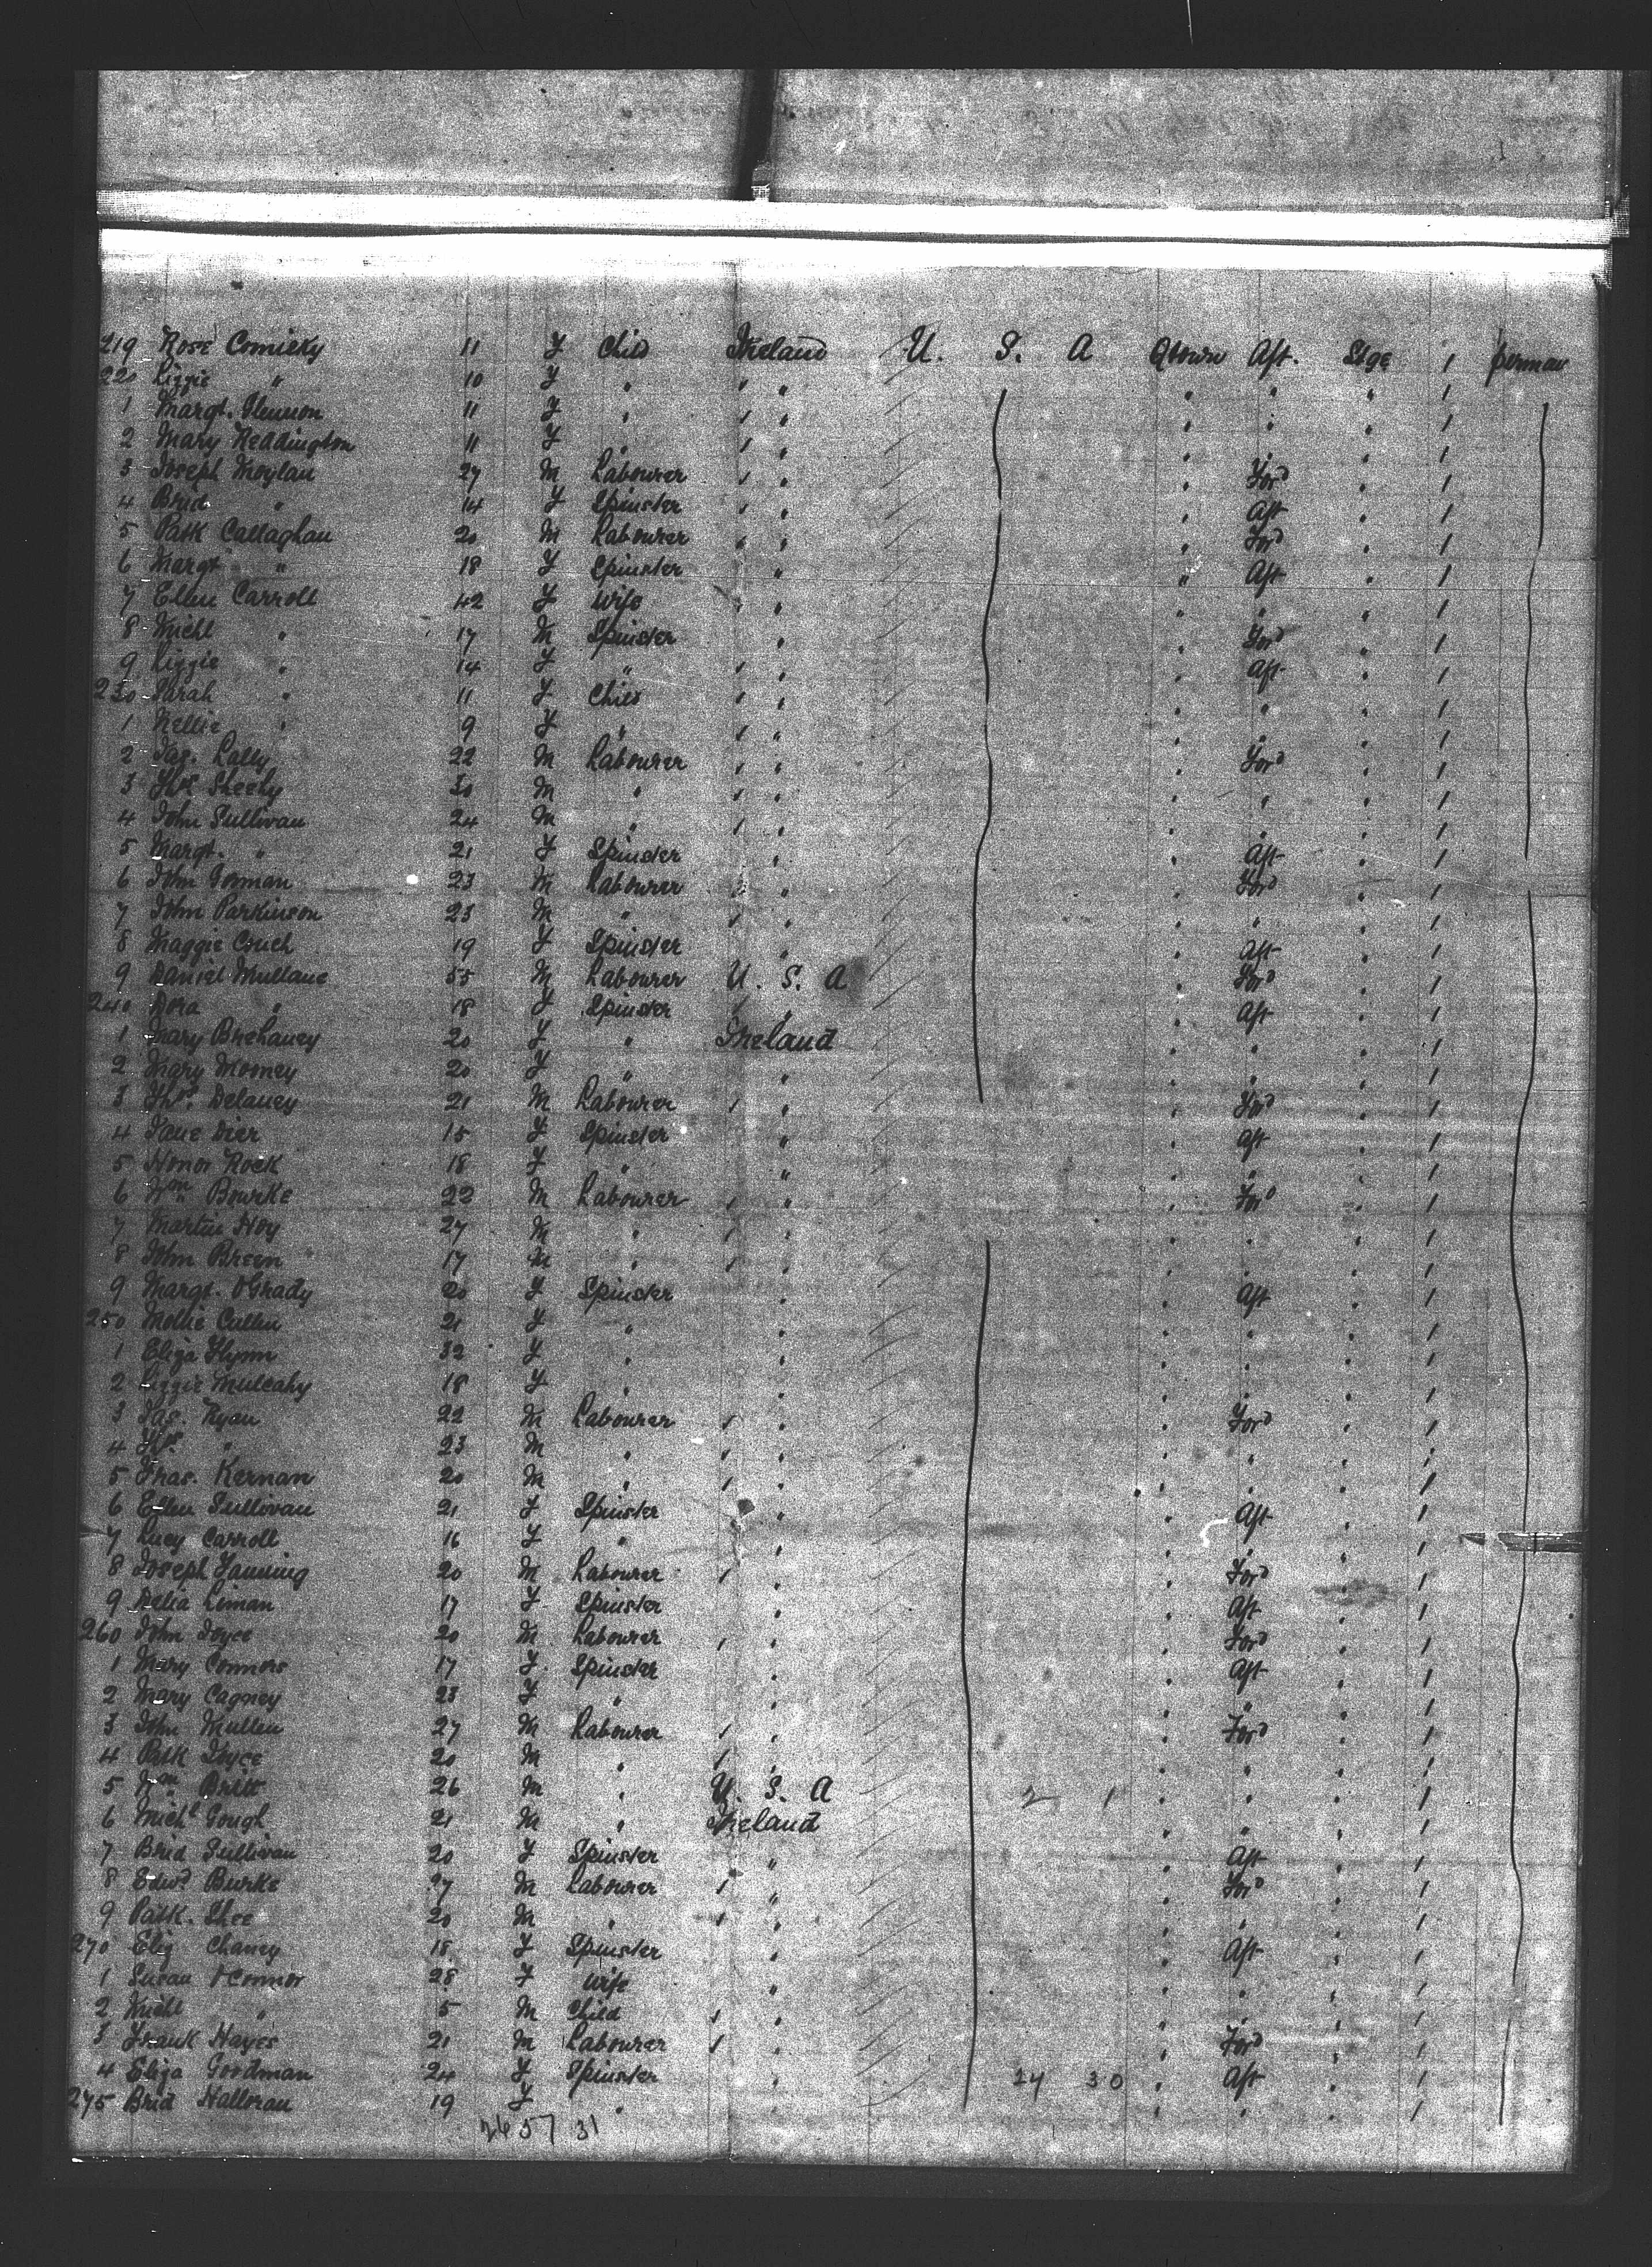 219 Rose Comisky 11 F Child Ireland U. S. A Qtown Aft. Stge 1 perman
220 Lizzie " 10 F " " " " " " 1
1 Margt. Glennon 11 F " " " " " " 1
2 Mary Reddington 11 F " " " " " " 1
3 Joseph Moylan 27 M Labourer " " " Ford " 1
4 Brid " 14 F Spinster " " " Aft " 1
5 Patk Callaghan 20 M Labourer " " " Ford " 1
6 Margt " 18 F Spinster " " Aft " 1
7 Ellen Carroll 42 F Wife " " " " " 1
8 Michl " 17 M Spinster " " Ford " 1
9 Lizzie " 14 F " " " " Aft " 1
230 Sarah " 11 F Child " " " " " 1
1 Nellie " 9 F " " " " " " 1
2 Jas. Lally 22 M Labourer " " " Ford " 1
3 Thos Sheehy 30 M " " " " " " 1
4 John Sullivan 24 M " " " " " " 1
5 Margt. " 21 F Spinster " " Aft " 1
6 John Gorman 23 M Labourer " " " Ford " 1
7 John Parkinson 23 M " " " " " " 1
8 Maggie Couch 19 F Spinster " " Aft " 1
9 Daniel Mullane 55 M Labourer U. S. A " Ford " 1
240 Dora " 18 F Spinster " " " Aft " 1
1 Mary Brehaney 20 F " Ireland " " " 1
2 Mary Mooney 20 F " " " " " 1
3 Thos. Delaney 21 M Labourer " " " Ford " 1
4 Jane Dier 15 F Spinster " " Aft " 1
5 Honor Rock 18 F " " " " " 1
6 Wm Bourke 22 M Labourer " " " Ford " 1
7 Martin Hoy 27 M " " " " " " 1
8 John Breen 17 M " " " " " " 1
9 Margt. O'Grady 20 F Spinster " " Aft " 1
250 Mollie Cullen 21 F " " " " " 1
1 Eliza Flynn 32 F " " " " " 1
2 Lizzie Mulcahy 18 F " " " " " 1
3 Jas. Ryan 22 M Labourer " " " Ford " 1
4 Thos. " 23 M " " " " " " 1
5 Fras. Kernan 20 M " " " " " " 1
6 Ellen Sullivan 21 F Spinster " " Aft " 1
7 Lucy Carroll 16 F " " " " " 1
8 Joseph Fanning 20 M Labourer " " " Ford " 1
9 Delia Liman 17 F Spinster " " Aft " 1
260 John Joyce 20 M Labourer " " " Ford " 1
1 Mary Connors 17 F Spinster " " Aft " 1
2 Mary Cagney 23 F " " " " " 1
3 John Mullen 27 M Labourer " " " Ford " 1
4 Patk Joyce 20 M " " " " " " 1
5 Wm Britt 26 M " U. S. A 2 1 " " " 1
6 Michl Gough 21 M " Ireland " " " 1
7 Brid Sullivan 20 F Spinster " " Aft " 1
8 Edwd Burke 27 M Labourer " " " Ford " 1
9 Patk. Shee 20 M " " " " " " 1
270 Eliz Chaney 18 F Spinster " " Aft " 1
1 Susan O'Connor 28 F Wife " " " " 1
2 Michl " 5 M Child " " " " " 1
3 Frank Hayes 21 M Labourer " " " Ford " 1
4 Eliza Goodman 24 F Spinster " 24 30 " Aft " 1
275 Brid Halloran 19 F " " " " " 1
2657 31